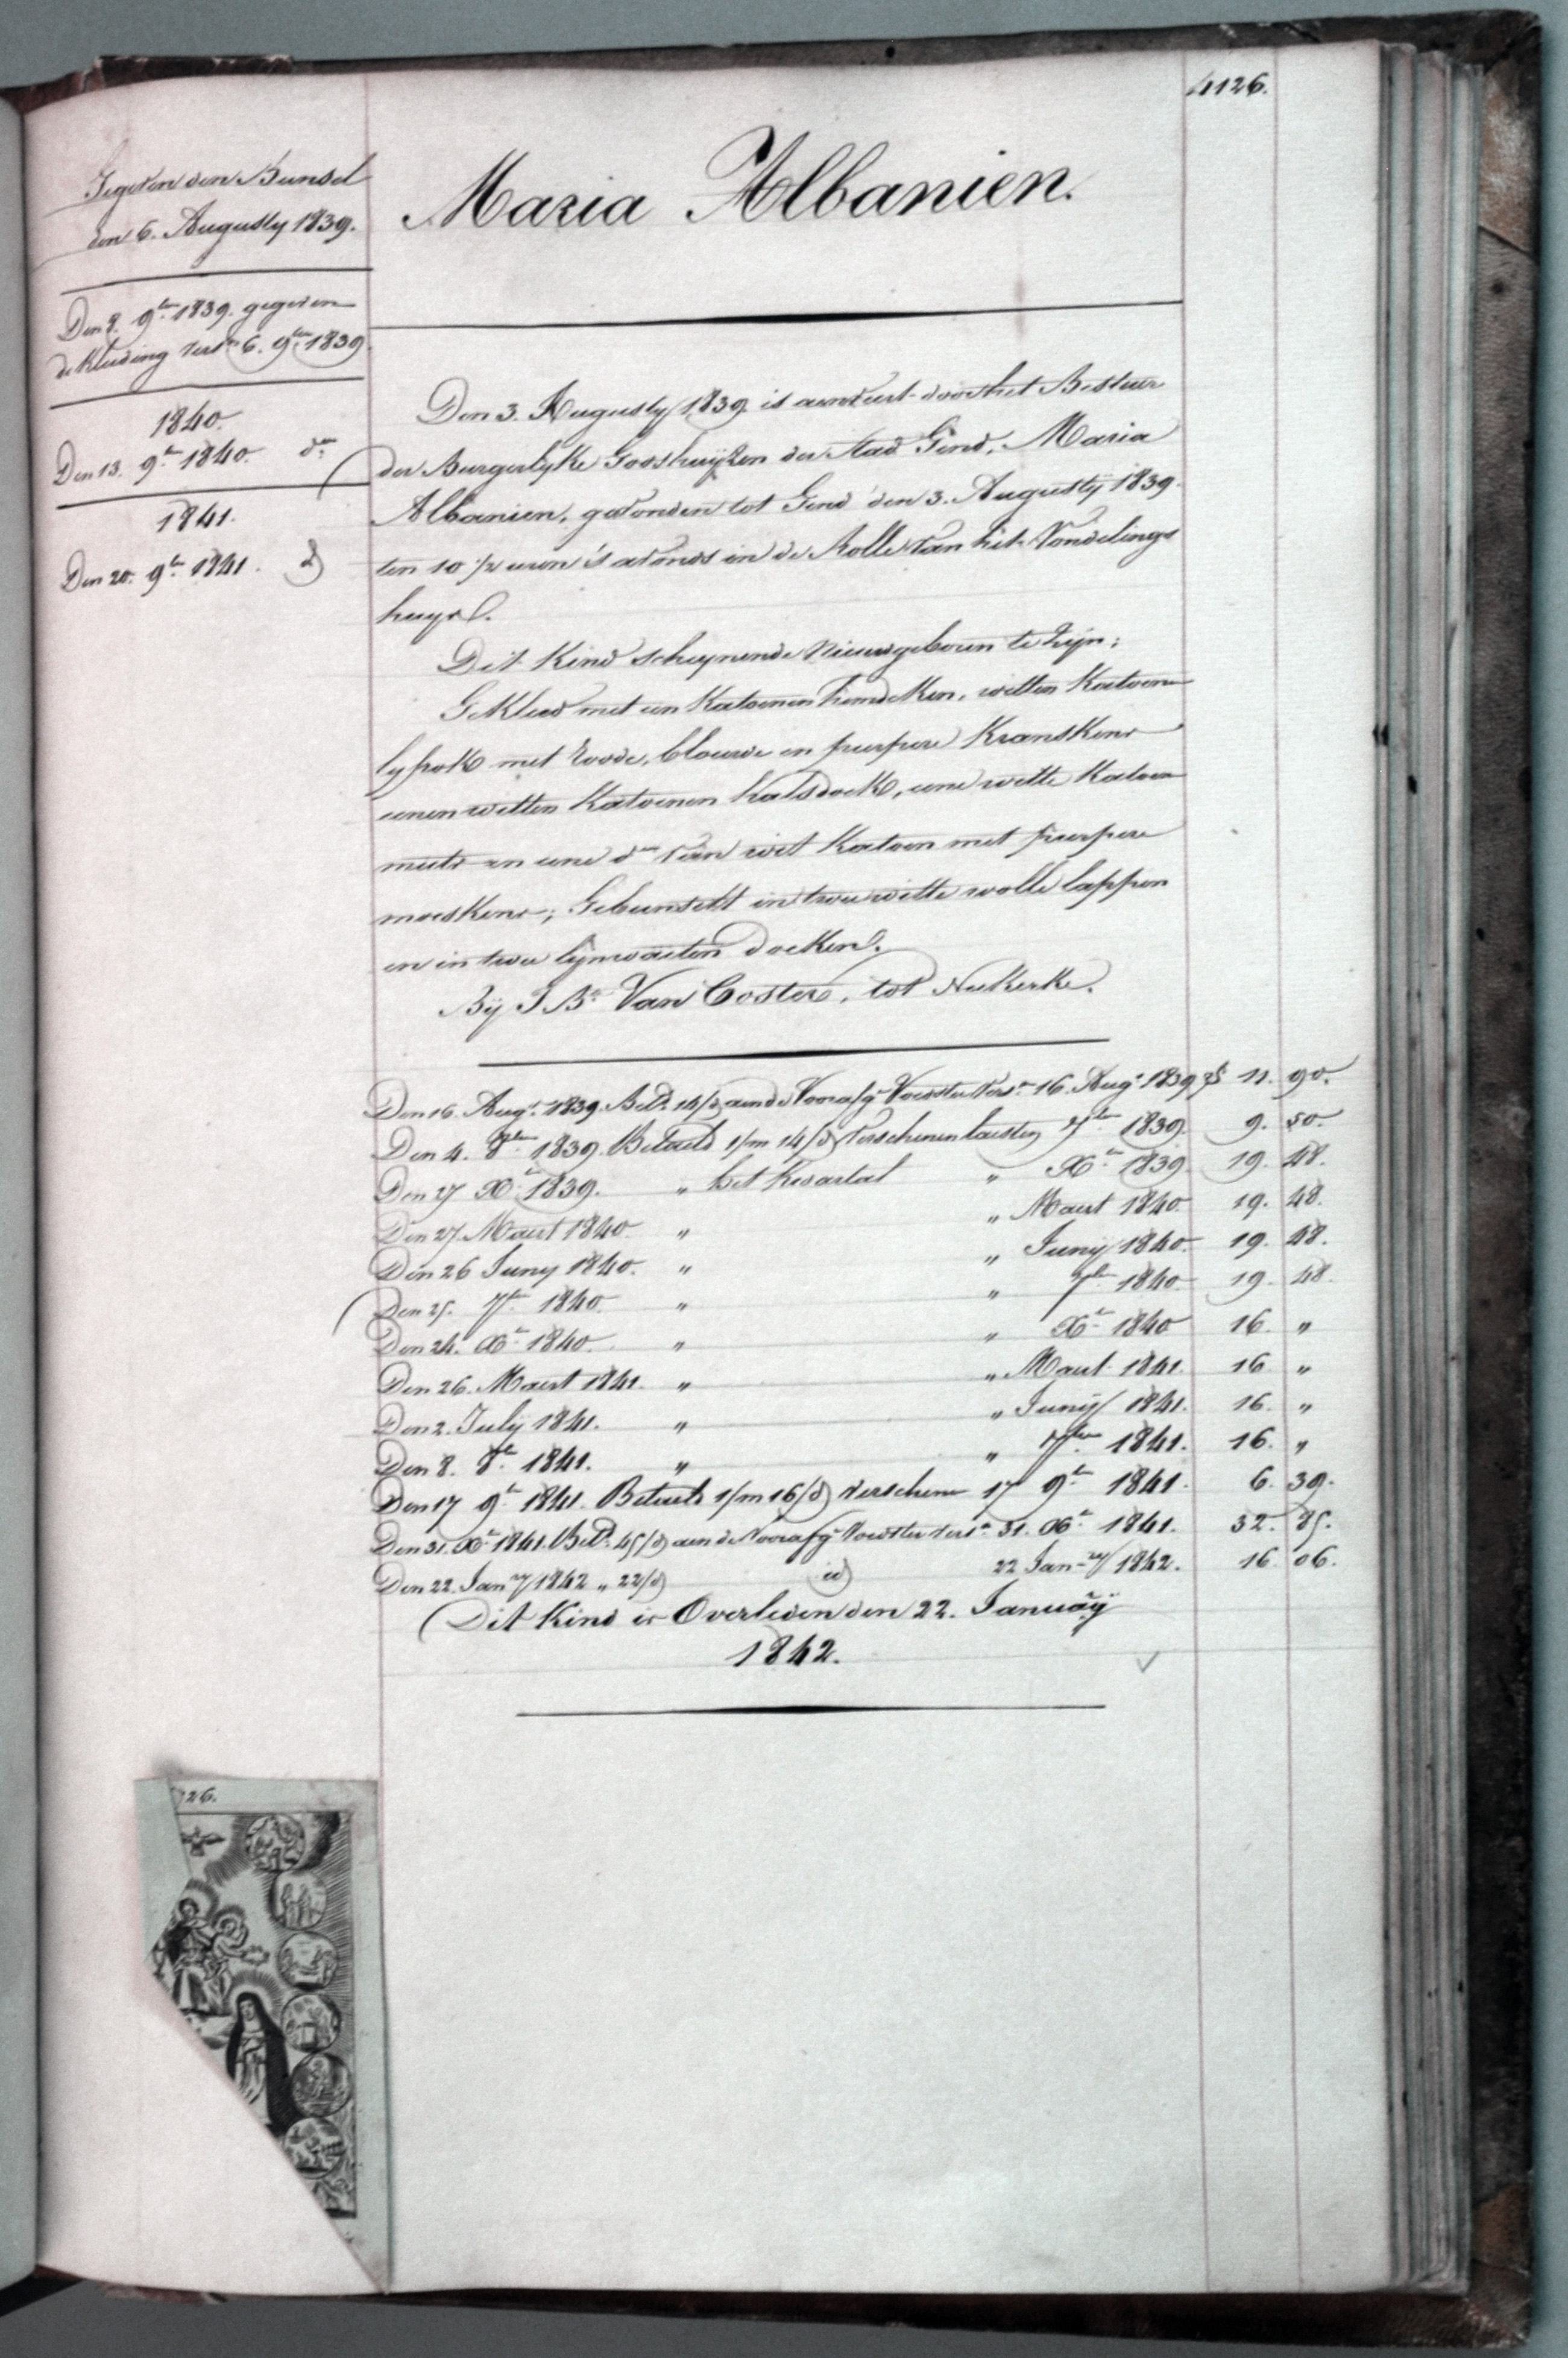 4126.
Maria Albanien.
Gegeven den Bunsel
den 6. Augusty 1839.
Den 8. 9ber 1839. gegeven
de kleeding vers.en 6. 9ber 1839
1840.
Den 13. 9ber 1840. do
1841.
Den 20. 9ber 1841. d)
Den 3. Augusty 1839 is aenveert door het Bestuur
der Burgerlyke Godshuyzen der Stad Gend, Maria
Albanien, gevonden tot Gend den 3. Augustÿ 1839.
ten 10 1/2 uren 's avonds in de Rolle van het Vondelings
huys.
Dit Kind scheynende Nieuwgeboren te zyn;
Gekleed met een Katoenen hemdeken, witten Katoene
lyfrok met roode, blauwe en purpere Kranskens
eenen witten Katoenen halsdoek, eene witte Katoen
muts en eene do van wit Katoen met purpere
moeskens; Gebunselt in twee witte wolle lappen
en in twee lynwaeten doeken.
By J. Bte Van Coster, tot Nukerke.
Den 16. Augt. 1839. Betd. 14/d aen de Voorafge Voedster vers.en 16. Augt. 1839 f 11. 90.
Den 4. 8ber 1839. Betaeld 1/m 14/d verschenen laesten 7ber 1839. 9. 50.
Den 27 Xber 1839. " het Kwartael " Xber 1839 19. 48.
Den 27. Maert 1840 " " Maert 1840. 19. 48.
Den 26 Juny 1840. " " Juny 1840. 19. 48.
Den 25. 7ber 1840. " " 7ber 1840. 19. 48.
Den 24. Xber 1840. " " Xber 1840 16. "
Den 26. Maert 1841. " " Maert 1841. 16. "
Den 2. July 1841. " " Juny 1841. 16. "
Den 8. 8ber 1841. " " 7ber 1841. 16. "
Den 17 9ber 1841. Betaeld 1/m 16/d verschenen 17 9ber 1841. 6. 39.
Den 31. Xber 1841. Betd. 45/d aen de Voorafge Voedster vers.en 31. Xber 1841. 32. 85.
Den 22. Jany 1842 " 22/d id) 22 Jany 1842. 16. 06.
Dit Kind is Overleden den 22. January
1842.
26.